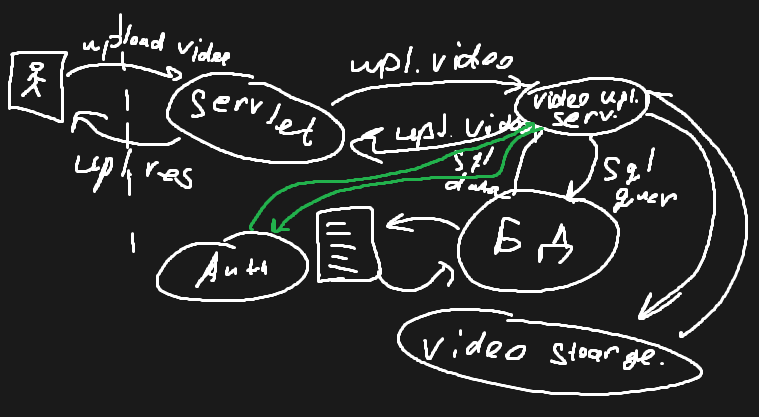 upload video
Servlet
upl. video
video upl.
serv.
upl. video
upl res
sql
data
Sql
quer
БД
Auth
video stoarge.